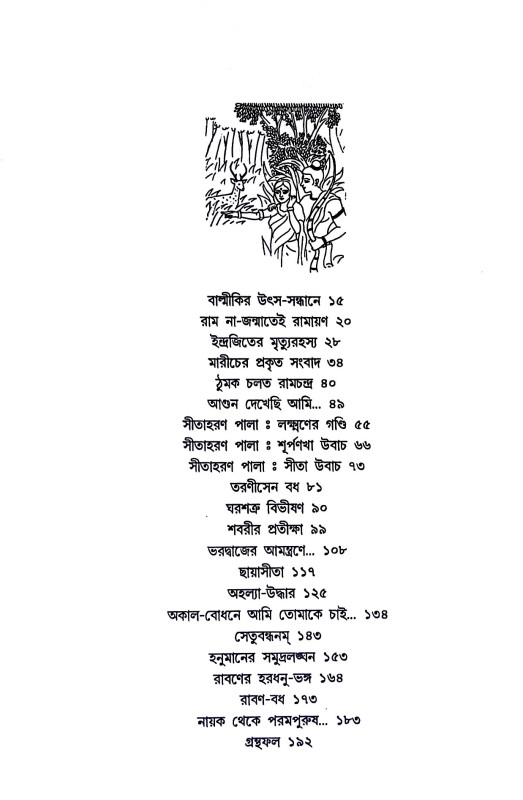 বাল্মীকির উৎস-সন্ধানে ১৫
রাম না-জন্মাতেই রামায়ণ ২০
ইন্দ্রজিতের মৃত্যুরহস্য ২৮
মারীচের প্রকৃত সংবাদ ৩৪
ঠুমক চলত রামচন্দ্র ৪০
আগুন দেখেছি আমি... ৪৯
সীতাহরণ পালা ঃ লক্ষ্মণের গণ্ডি ৫৫
সীতাহরণ পালা ঃ শূর্পণখা উবাচ ৬৬
সীতাহরণ পালা ঃ সীতা উবাচ ৭৩
তরণীসেন বধ ৮১
ঘরশত্রু বিভীষণ ৯০
শবরীর প্রতীক্ষা ৯৯
ভরদ্বাজের আমন্ত্রণে... ১০৮
ছায়াসীতা ১১৭
অহল্যা-উদ্ধার ১২৫
অকাল-বোধনে আমি তোমাকে চাই... ১৩৪
সেতুবন্ধনম্ ১৪৩
হনুমানের সমুদ্রলঙ্ঘন ১৫৩
রাবণের হরধনু-ভঙ্গ ১৬৪
রাবণ-বধ ১৭৩
নায়ক থেকে পরমপুরুষ... ১৮৩
গ্রন্থফল ১৯২